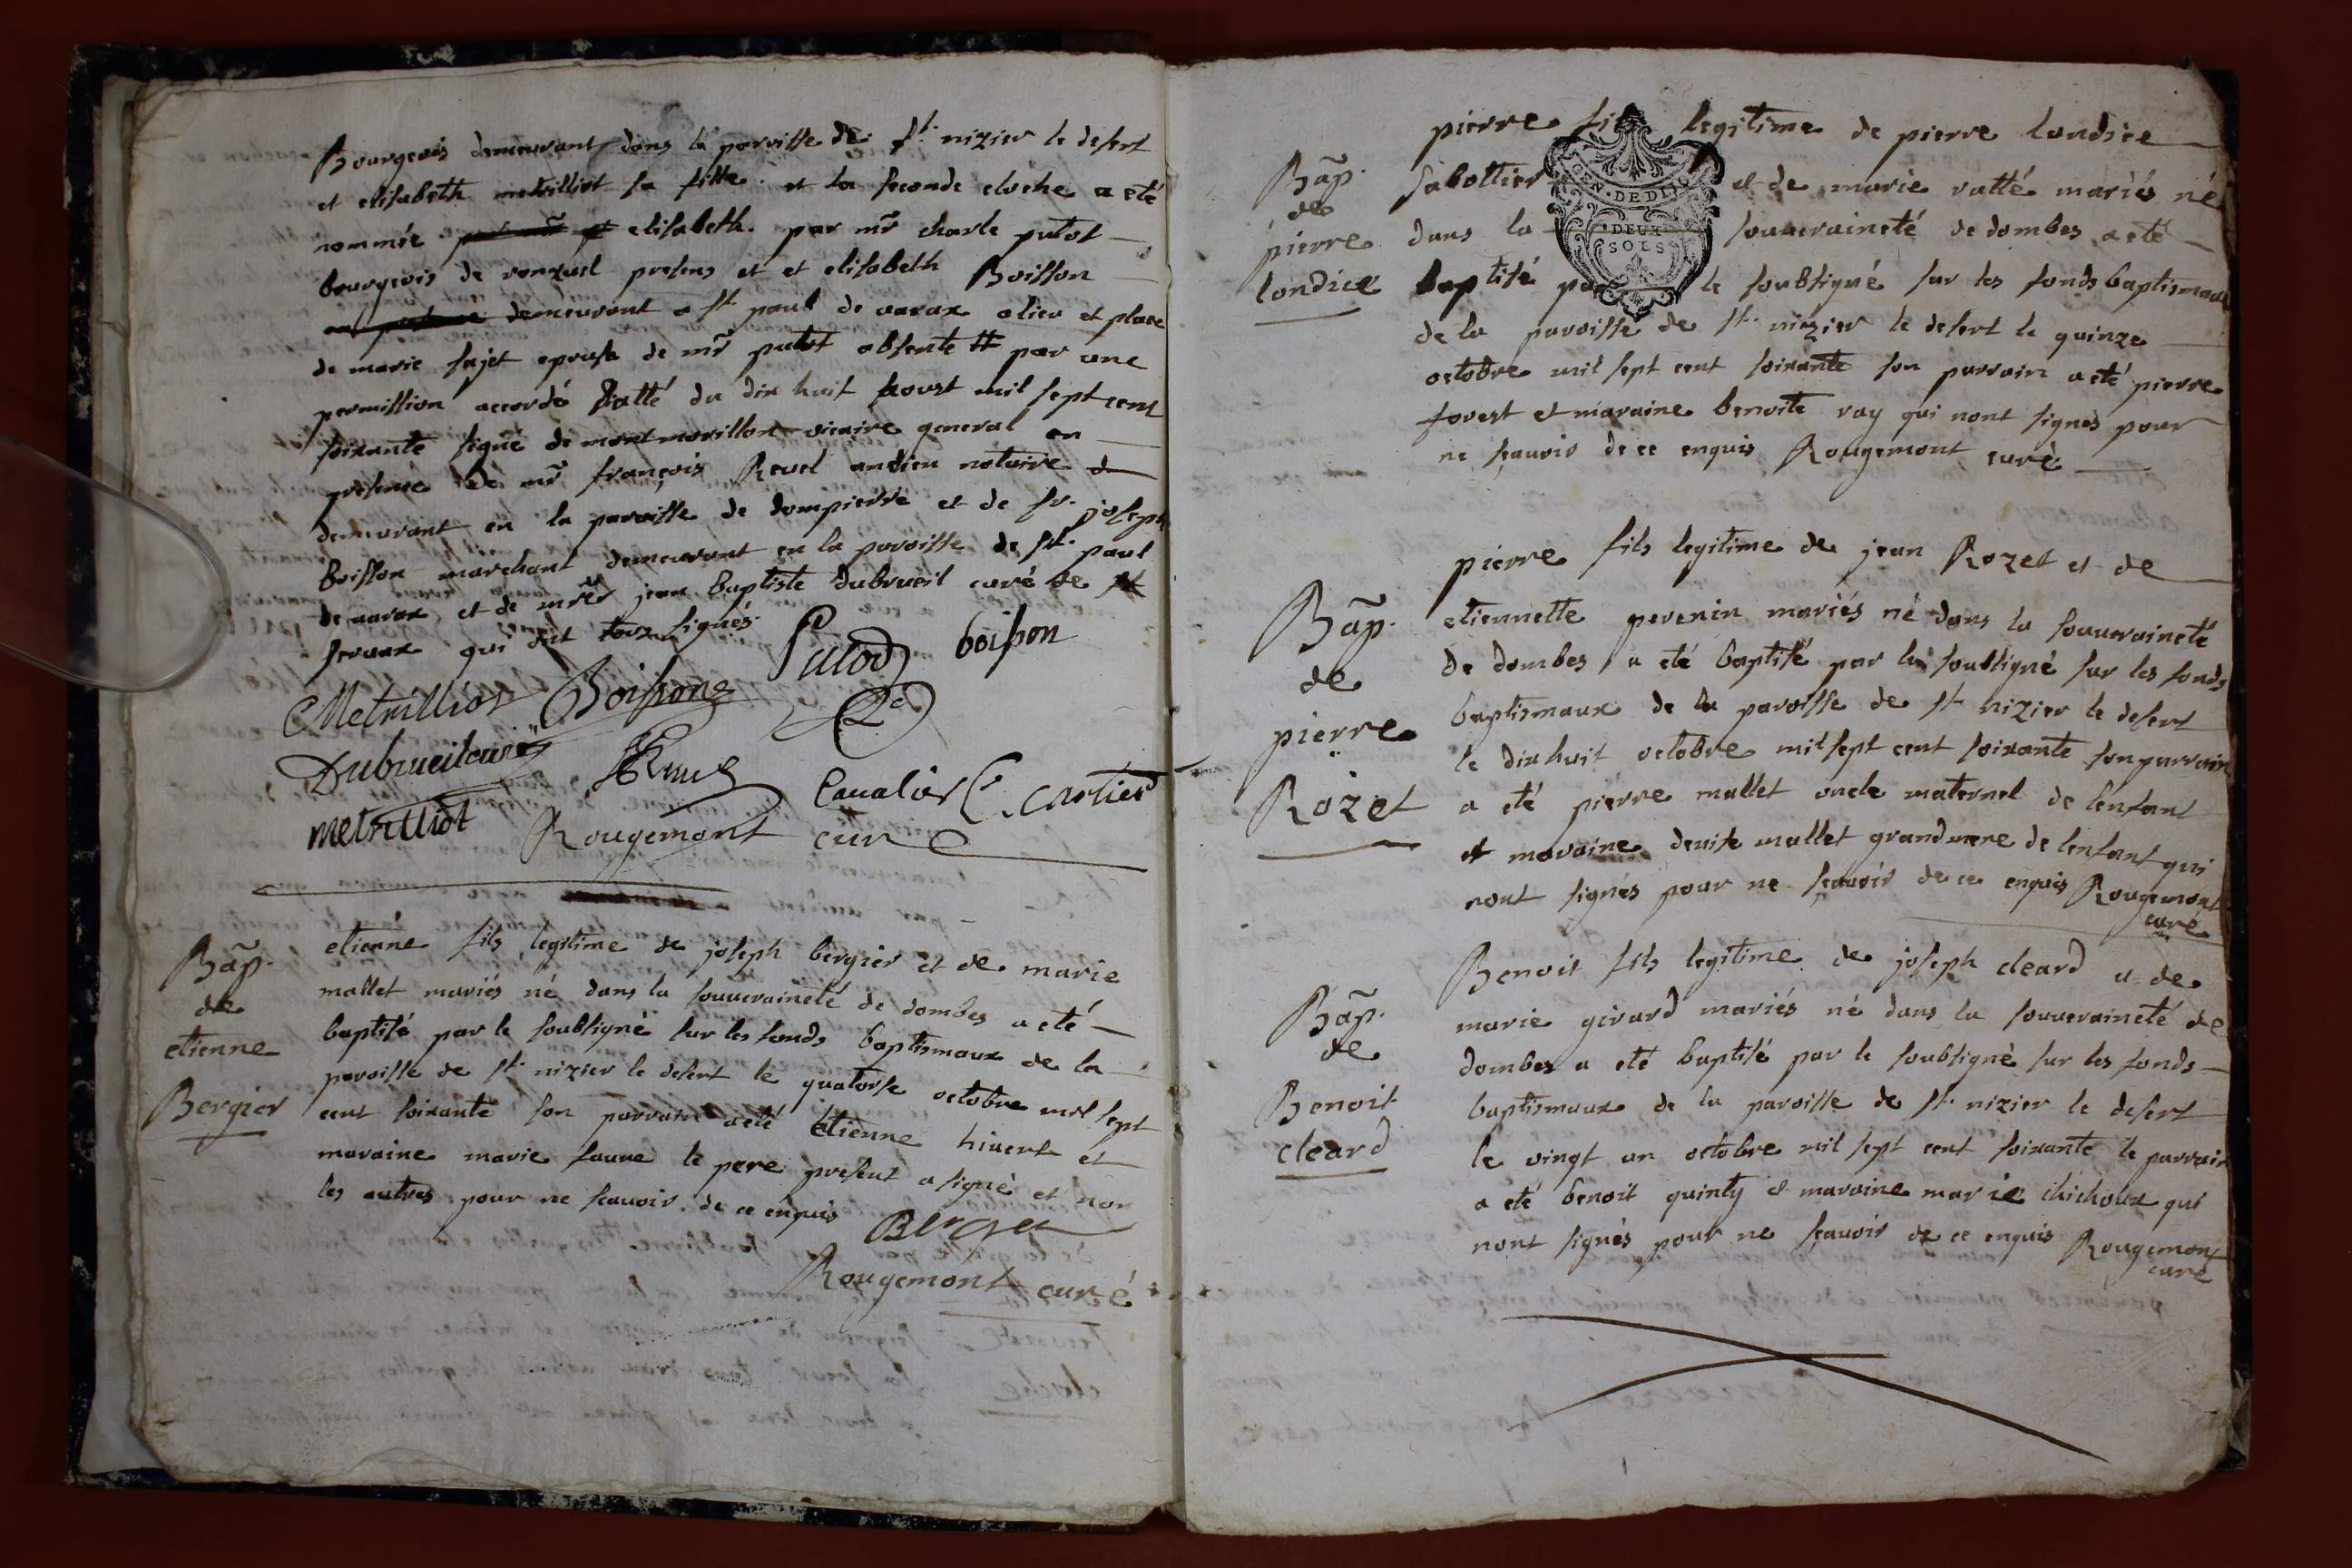 Bourgeois demeurant dans la paroisse de st. nizier le desert
et elisabeth metrilliot sa fille. et la seconde cloche a eté
nommée elisabeth. par mr charle putot
bourgeois de presens et et elisabeth Boisson
demeurant a st. paul de varax a lieu et place
de marie sajet epouse de mr putot absente # par une
permission accordé datté du dix huit aoust mil sept cent
soixante signé de montmorillon vicaire general en
presence de mr françois Revel notaire
demeurant en la paroisse de dompierre et de sr. joseph
boisson marchant demeurant en la paroisse de st. paul
de varax et de jean baptiste dubrueil curé de st
qui ont tous signés.
Putod boisson
Metrilliot Boissons
Dubrueil curé
metrilliot Cavalier C. Cartier
Rougemont curé
Bap.
de
etienne
Bergier
etienne fils legitime de joseph bergier et de marie
mallet mariés né dans la souveraineté de dombes a eté
baptisé par le soubsigné sur les fonds baptismaux de la
paroisse de st. nizier le desert le quatorse octobre mil sept
cent soixante son parrain a eté etienne hivert et
maraine marie faure le pere present a signé et non
les autres pour ne scavoir de ce enquis
Bergier
Rougemont curé
GEN. DE DIJON
DEUX
SOLS
Bap.
de
pierre
londice
pierre fils legitime de pierre londice
sabottier et de marie vatté mariés né
dans la souveraineté de dombes a eté
baptisé par le soubsigné sur les fonds baptismaux
de la paroisse de st. nizier le desert le quinze
octobre mil sept cent soixante son parrain a eté pierre
forest et maraine benoite ray qui nont signés pour
ne scavoir de ce enquis Rougemont curé
Bap.
de
pierre
Rozet
pierre fils legitime de jean Rozet et de
etiennette perenin mariés né dans la souveraineté
de dombes a eté baptisé par le soubsigné sur les fonds
baptismaux de la paroisse de st nizier le desert
le dix huit octobre mil sept cent soixante son parrain
a eté pierre mallet oncle maternel de lenfant
et maraine denise mallet grandmere de lenfant qui
nont signés pour ne scavoir de ce enquis Rougemont
curé
Bap.
de
Benoit
cleard
Benoit fils legitime de joseph cleard et de
marie girard mariés né dans la souveraineté de
dombes a eté baptisé par le soubsigné sur les fonds
baptismaux de la paroisse de st. nizier le desert
le vingt un octobre mil sept cent soixante le parrain
a eté benoit quinty et maraine marie chichoux qui
nont signés pour ne scavoir de ce enquis Rougemont
curé